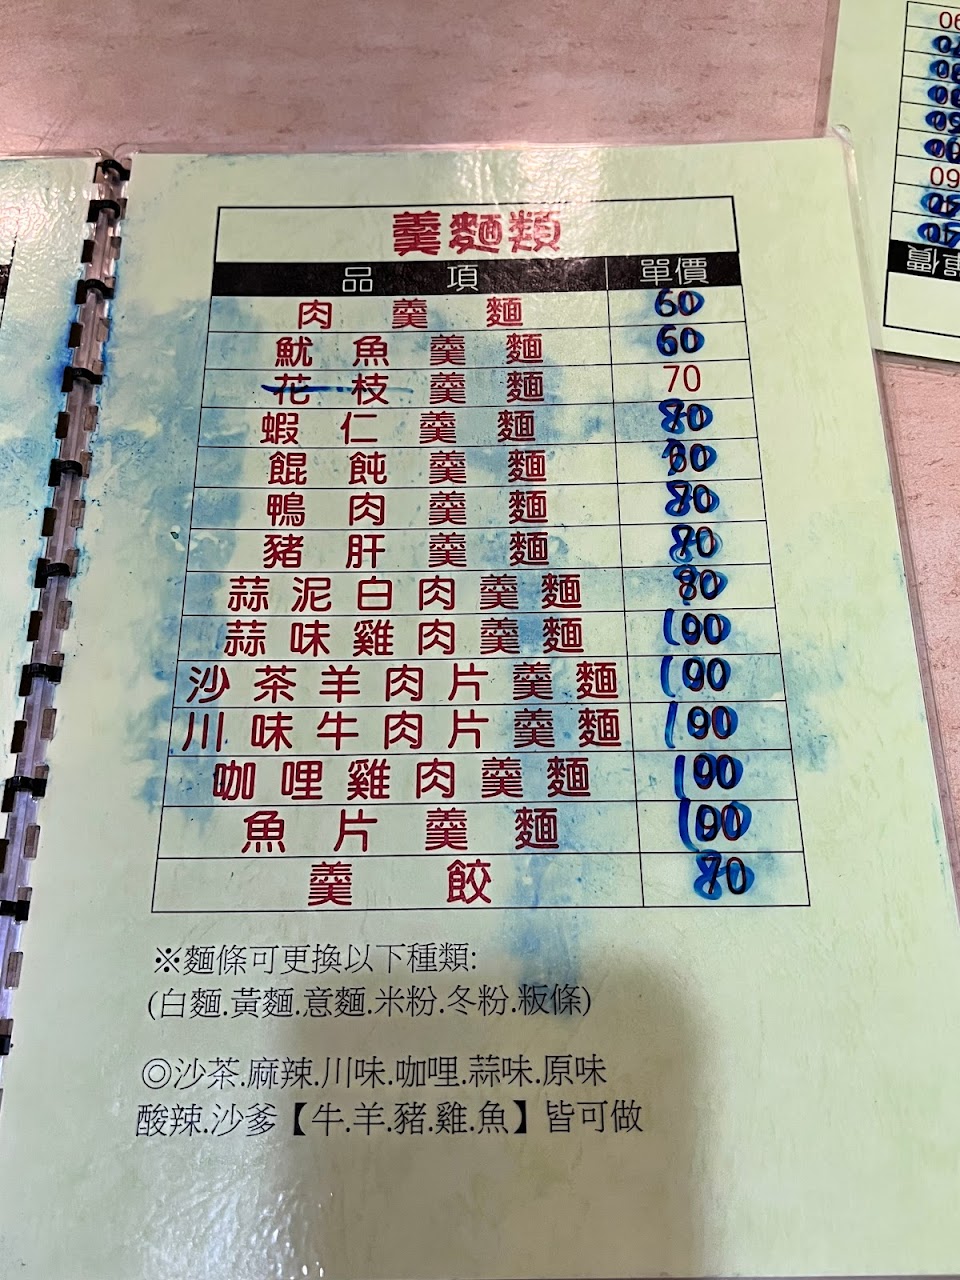 羹麵類
品項 單價
肉羹麵 60
魷魚羹麵 60
花枝羹麵 70
蝦仁羹麵 80
餛飩羹麵 80
鴨肉羹麵 80
豬肝羹麵 80
蒜泥白肉羹麵 80
蒜味雞肉羹麵 100
沙茶羊肉片羹麵 100
川味牛肉片羹麵 100
咖哩雞肉羹麵 100
魚片羹麵 100
羹餃 80
※麵條可更換以下種類:
(白麵.黃麵.意麵.米粉.冬粉.粄條)
◎沙茶.麻辣.川味.咖哩.蒜味.原味
酸辣.沙爹【牛.羊.豬.雞.魚】皆可做
單價